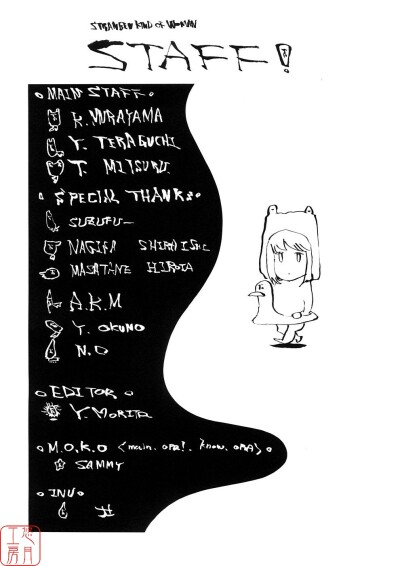 STRANGER KIND of WOMAN
STAFF!
○ MAIN STAFF ○
K. MURAYAMA
Y. TERAGUCHI
T. MITSURU
○ SPECIAL THANKS ○
SUZUFU—
NAGISA
MASATANE HIROTA
A.K.M
Y. OKUNO
N.O
○ EDITOR ○
Y. MORITA
○ M.O.K.O <main. OPA!. know. OPA> ○
SAMMY
○ INU ○
月
工房